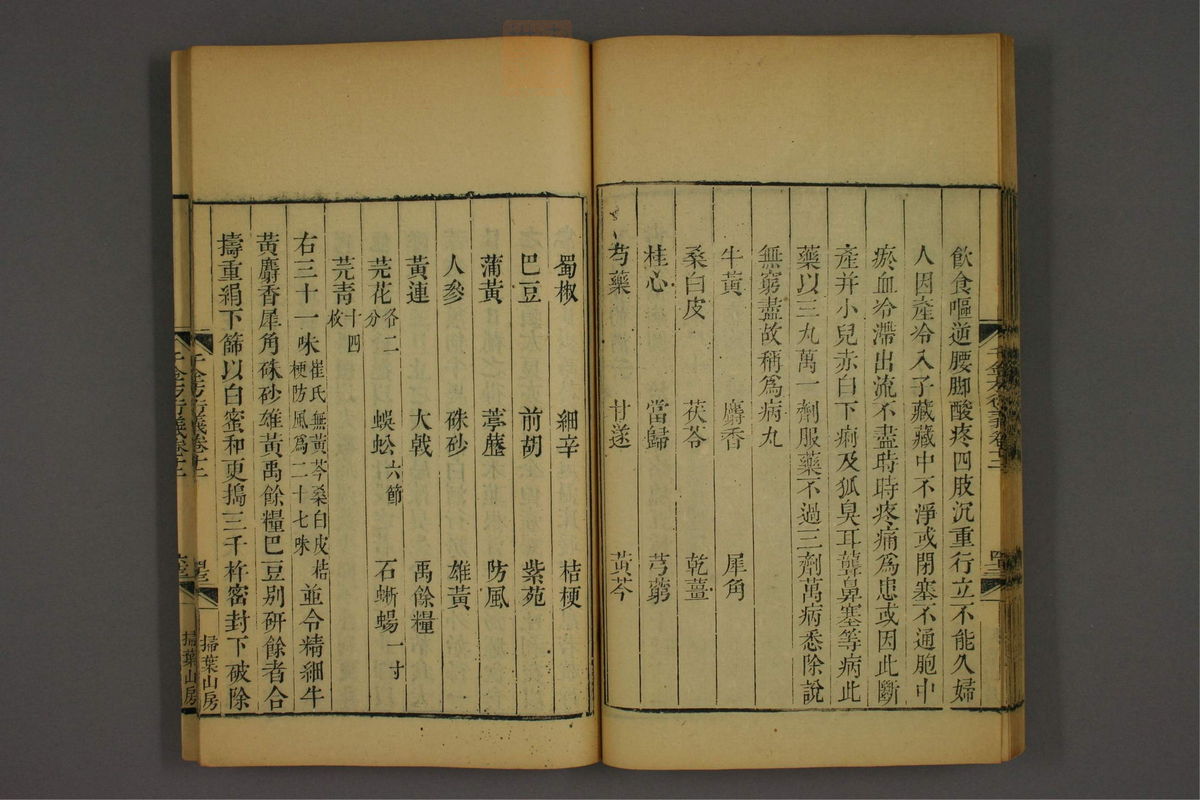 飲食嘔逆腰脚酸疼四肢沉重行立不能久婦
人因產冷入子藏藏中不淨或閉塞不通胞中
瘀血冷滯出流不盡時時疼痛爲患或因此斷
產并小兒赤白下痢及狐臭耳聾鼻塞等病此
藥以三丸萬一劑服藥不過三劑萬病悉除說
無窮盡故稱爲病丸
牛黃 麝香 犀角
桑白皮 茯苓 乾薑
桂心 當歸 芎藭
芍藥 甘遂 黃芩
蜀椒 細辛 桔梗
巴豆 前胡 紫苑
蒲黃 葶藶 防風
人參 硃砂 雄黃
黃連 大戟 禹餘糧
芫花各二分 蜈蚣六節 石蜥蜴一寸
芫青十四枚
右三十一味崔氏無黃芩桑白皮桔梗防風爲二十七味並令精細牛
黃麝香犀角硃砂雄黃禹餘糧巴豆别研餘者合
擣重絹下篩以白蜜和更搗三千杵密封下破除
千金方衍義卷十二
掃葉山房
千金方衍義卷十二
掃葉山房